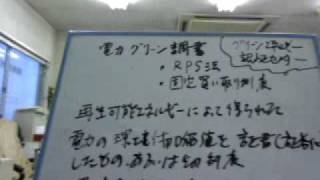 電力グリーン証書
・RPS法
・固定買い取り制度
グリーンエネルギー
認証センター
再生可能エネルギーによって得られた
電力の環境付加価値を証書(証券)化
したもの あるいは制度